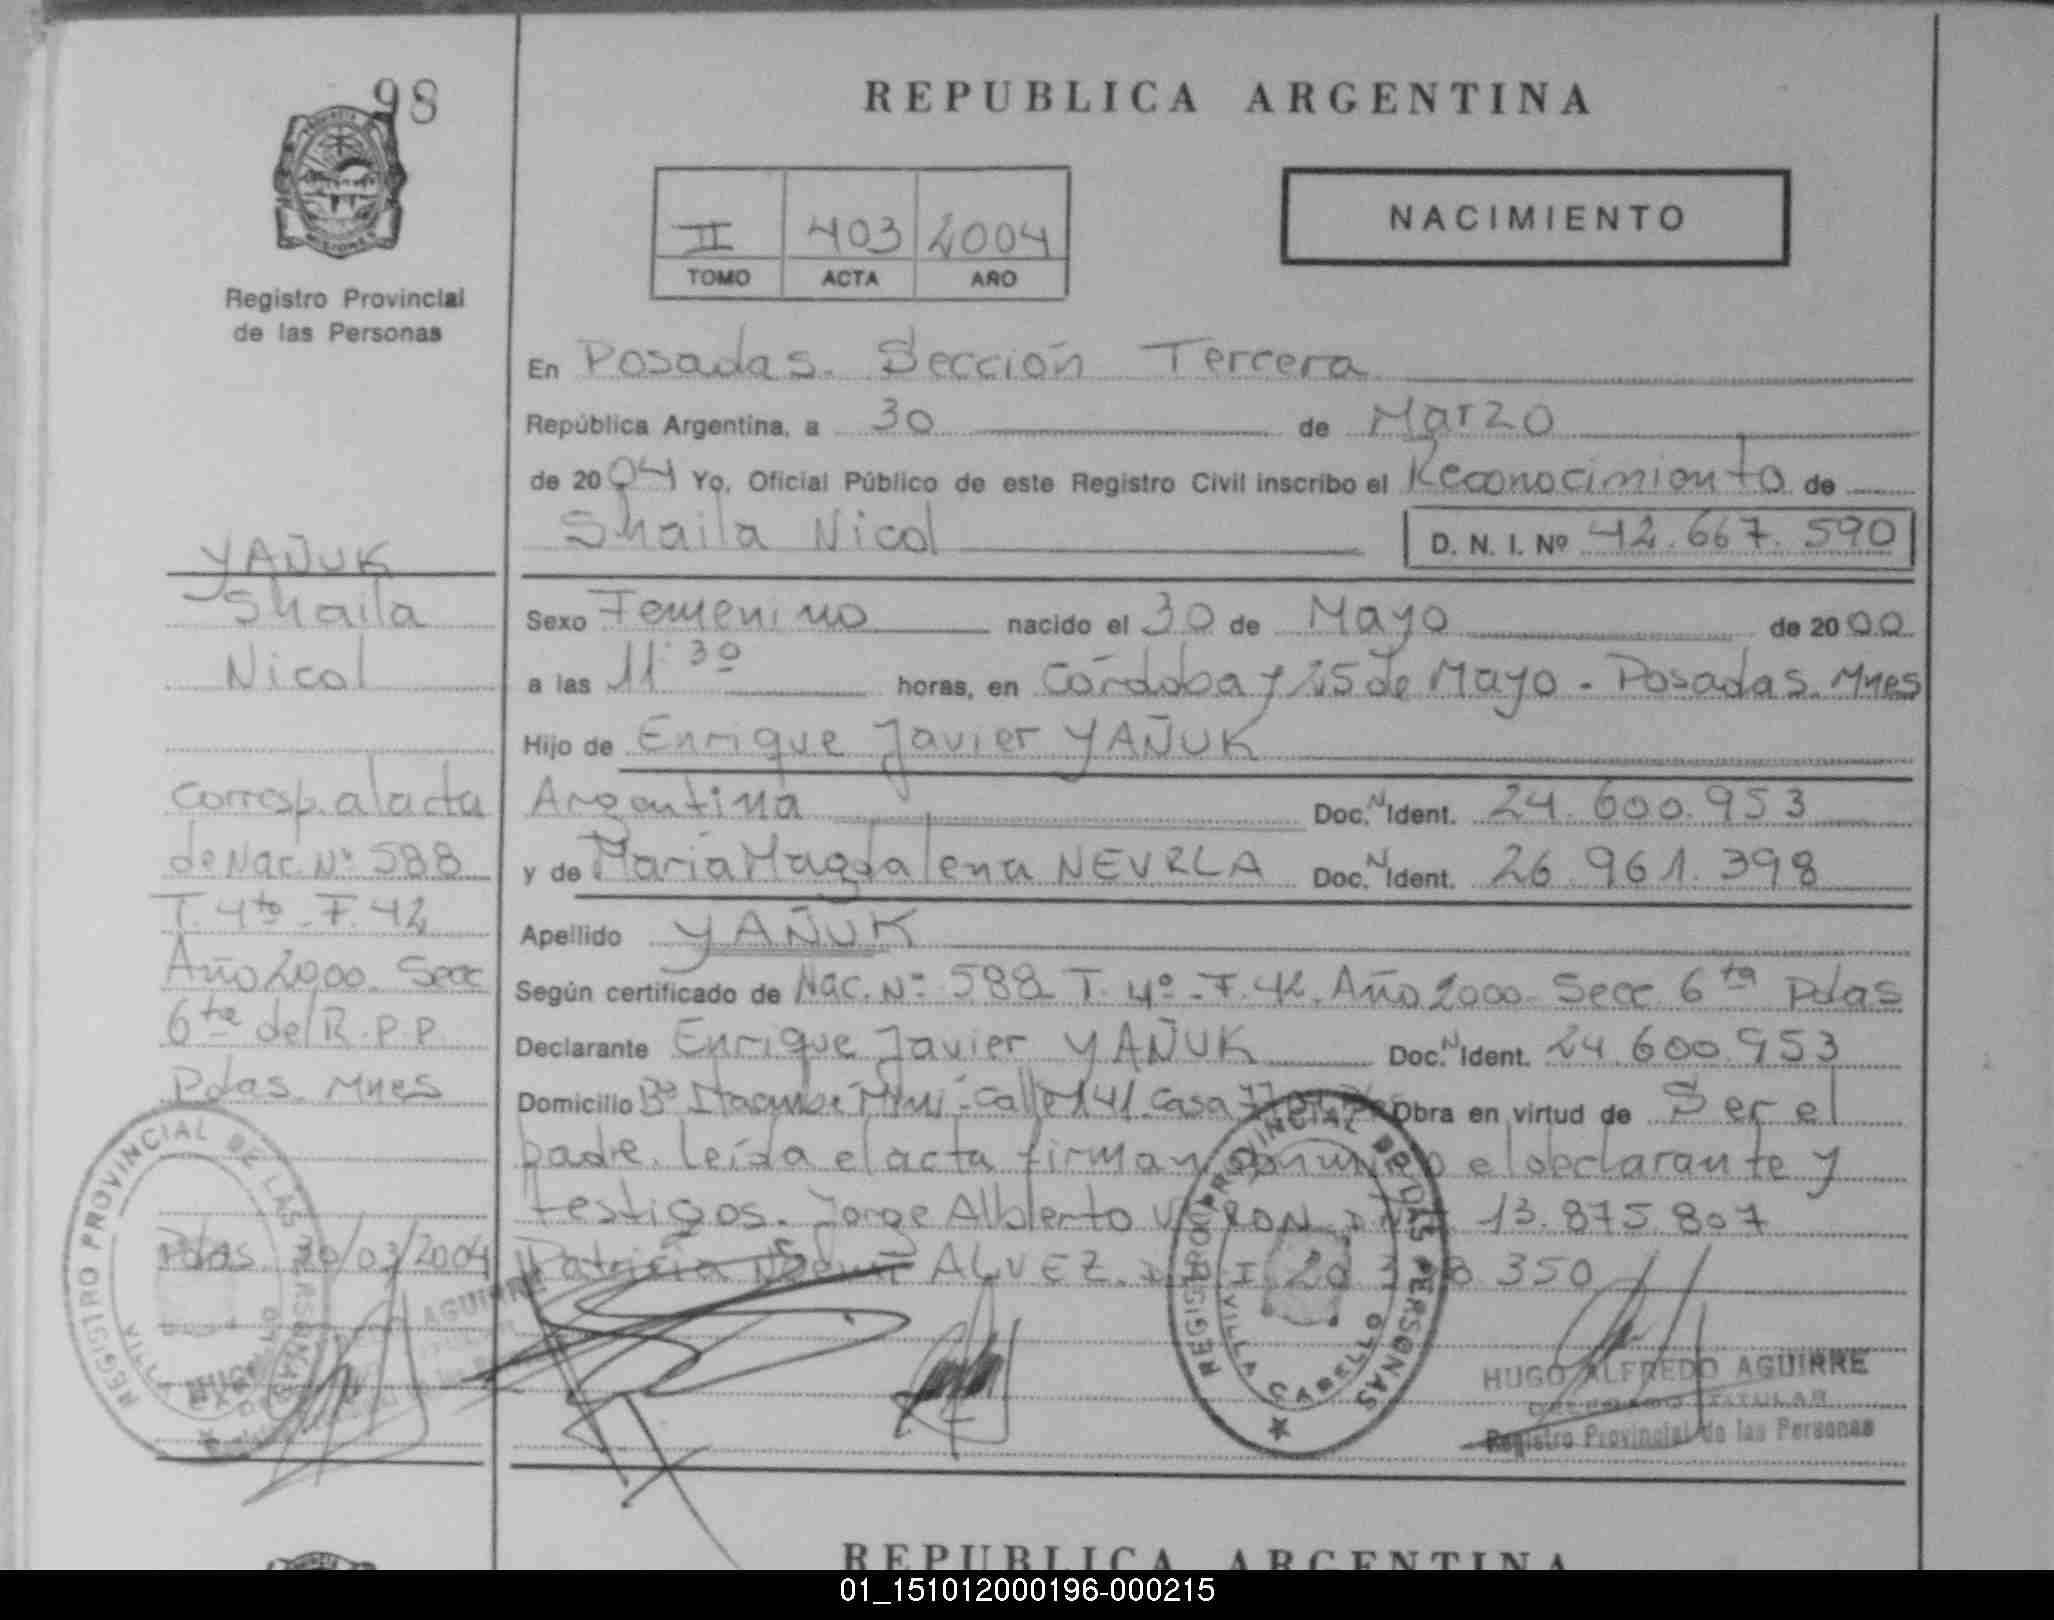 98
PROVINCIA DE
MISIONES
Registro Provincial
de las Personas
YAÑUK
Shaila
Nicol
Corresp. al acta
de Nac. Nº 588
T. 4to - F. 42
Año 2000. Secc
6ta del R.P.P.
Pdas. Mnes
REGISTRO PROVINCIAL DE LAS PERSONAS
VILLA
Pdas. 30/03/2004
AGUIRRE
REPUBLICA ARGENTINA
NACIMIENTO
II 403 2004
TOMO ACTA AÑO
En Posadas. Sección Tercera
República Argentina, a 30 de Marzo
de 2004 Yo, Oficial Público de este Registro Civil inscribo el Reconocimiento de
Shaila Nicol D. N. I. Nº 42.667.590
Sexo Femenino nacido el 30 de Mayo de 2000
a las 11 30 horas, en Córdoba y 25 de Mayo - Posadas. Mnes
Hijo de Enrique Javier YAÑUK
Argentina Doc. N Ident. 24.600.953
y de María Magdalena NEVRLA Doc. N Ident. 26.961.398
Apellido YAÑUK
Según certificado de Nac. Nº 588 T. 4º - F. 42. Año 2000 - Secc 6ta Pdas
Declarante Enrique Javier YAÑUK Doc. N Ident. 24.600.953
Domicilio Bº Itaembé Miní - Calle 141. Casa Obra en virtud de Ser el
padre. leída el acta firman el declarante y
testigos. Jorge Alberto 13.875.807
Patricia ALVEZ. 350
REGISTRO PROVINCIAL DE LAS PERSONAS
VILLA CABELLO
HUGO ALFREDO AGUIRRE
DELEGADO TITULAR
Registro Provincial de las Personas
REPUBLICA ARGENTINA
01_151012000196-000215